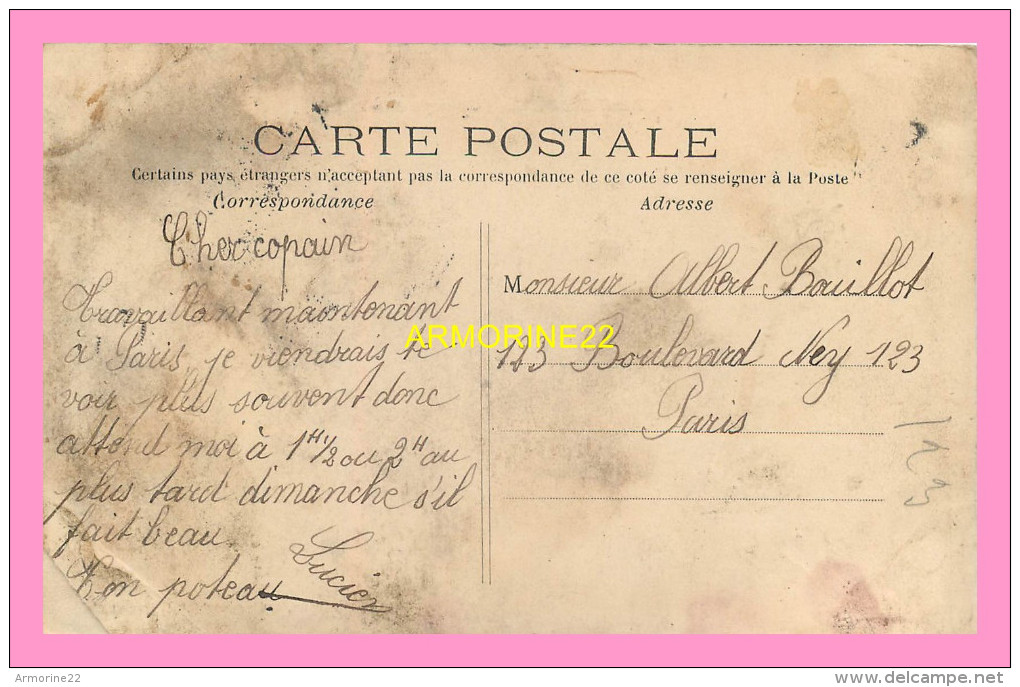 CARTE POSTALE
Certains pays étrangers n'acceptant pas la correspondance de ce coté se renseigner à la Poste
Correspondance
Cher copain
Travaillant maintenant
à Paris je viendrais te
voir plus souvent donc
attend moi à 1H1/2 ou 2H au
plus tard dimanche s'il
fait beau.
Ton poteau Lucien
Adresse
Monsieur Albert Bouillot
123 Boulevard Ney 123
Paris
ARMORINE22
Armorine22
delcampe.net